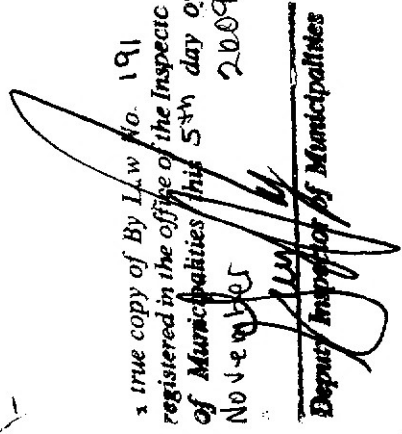 true copy of By Law No. 191
registered in the office of the Inspecto
of Municipalities this 5th day o
November 2009
Deputy Inspector of Municipalities